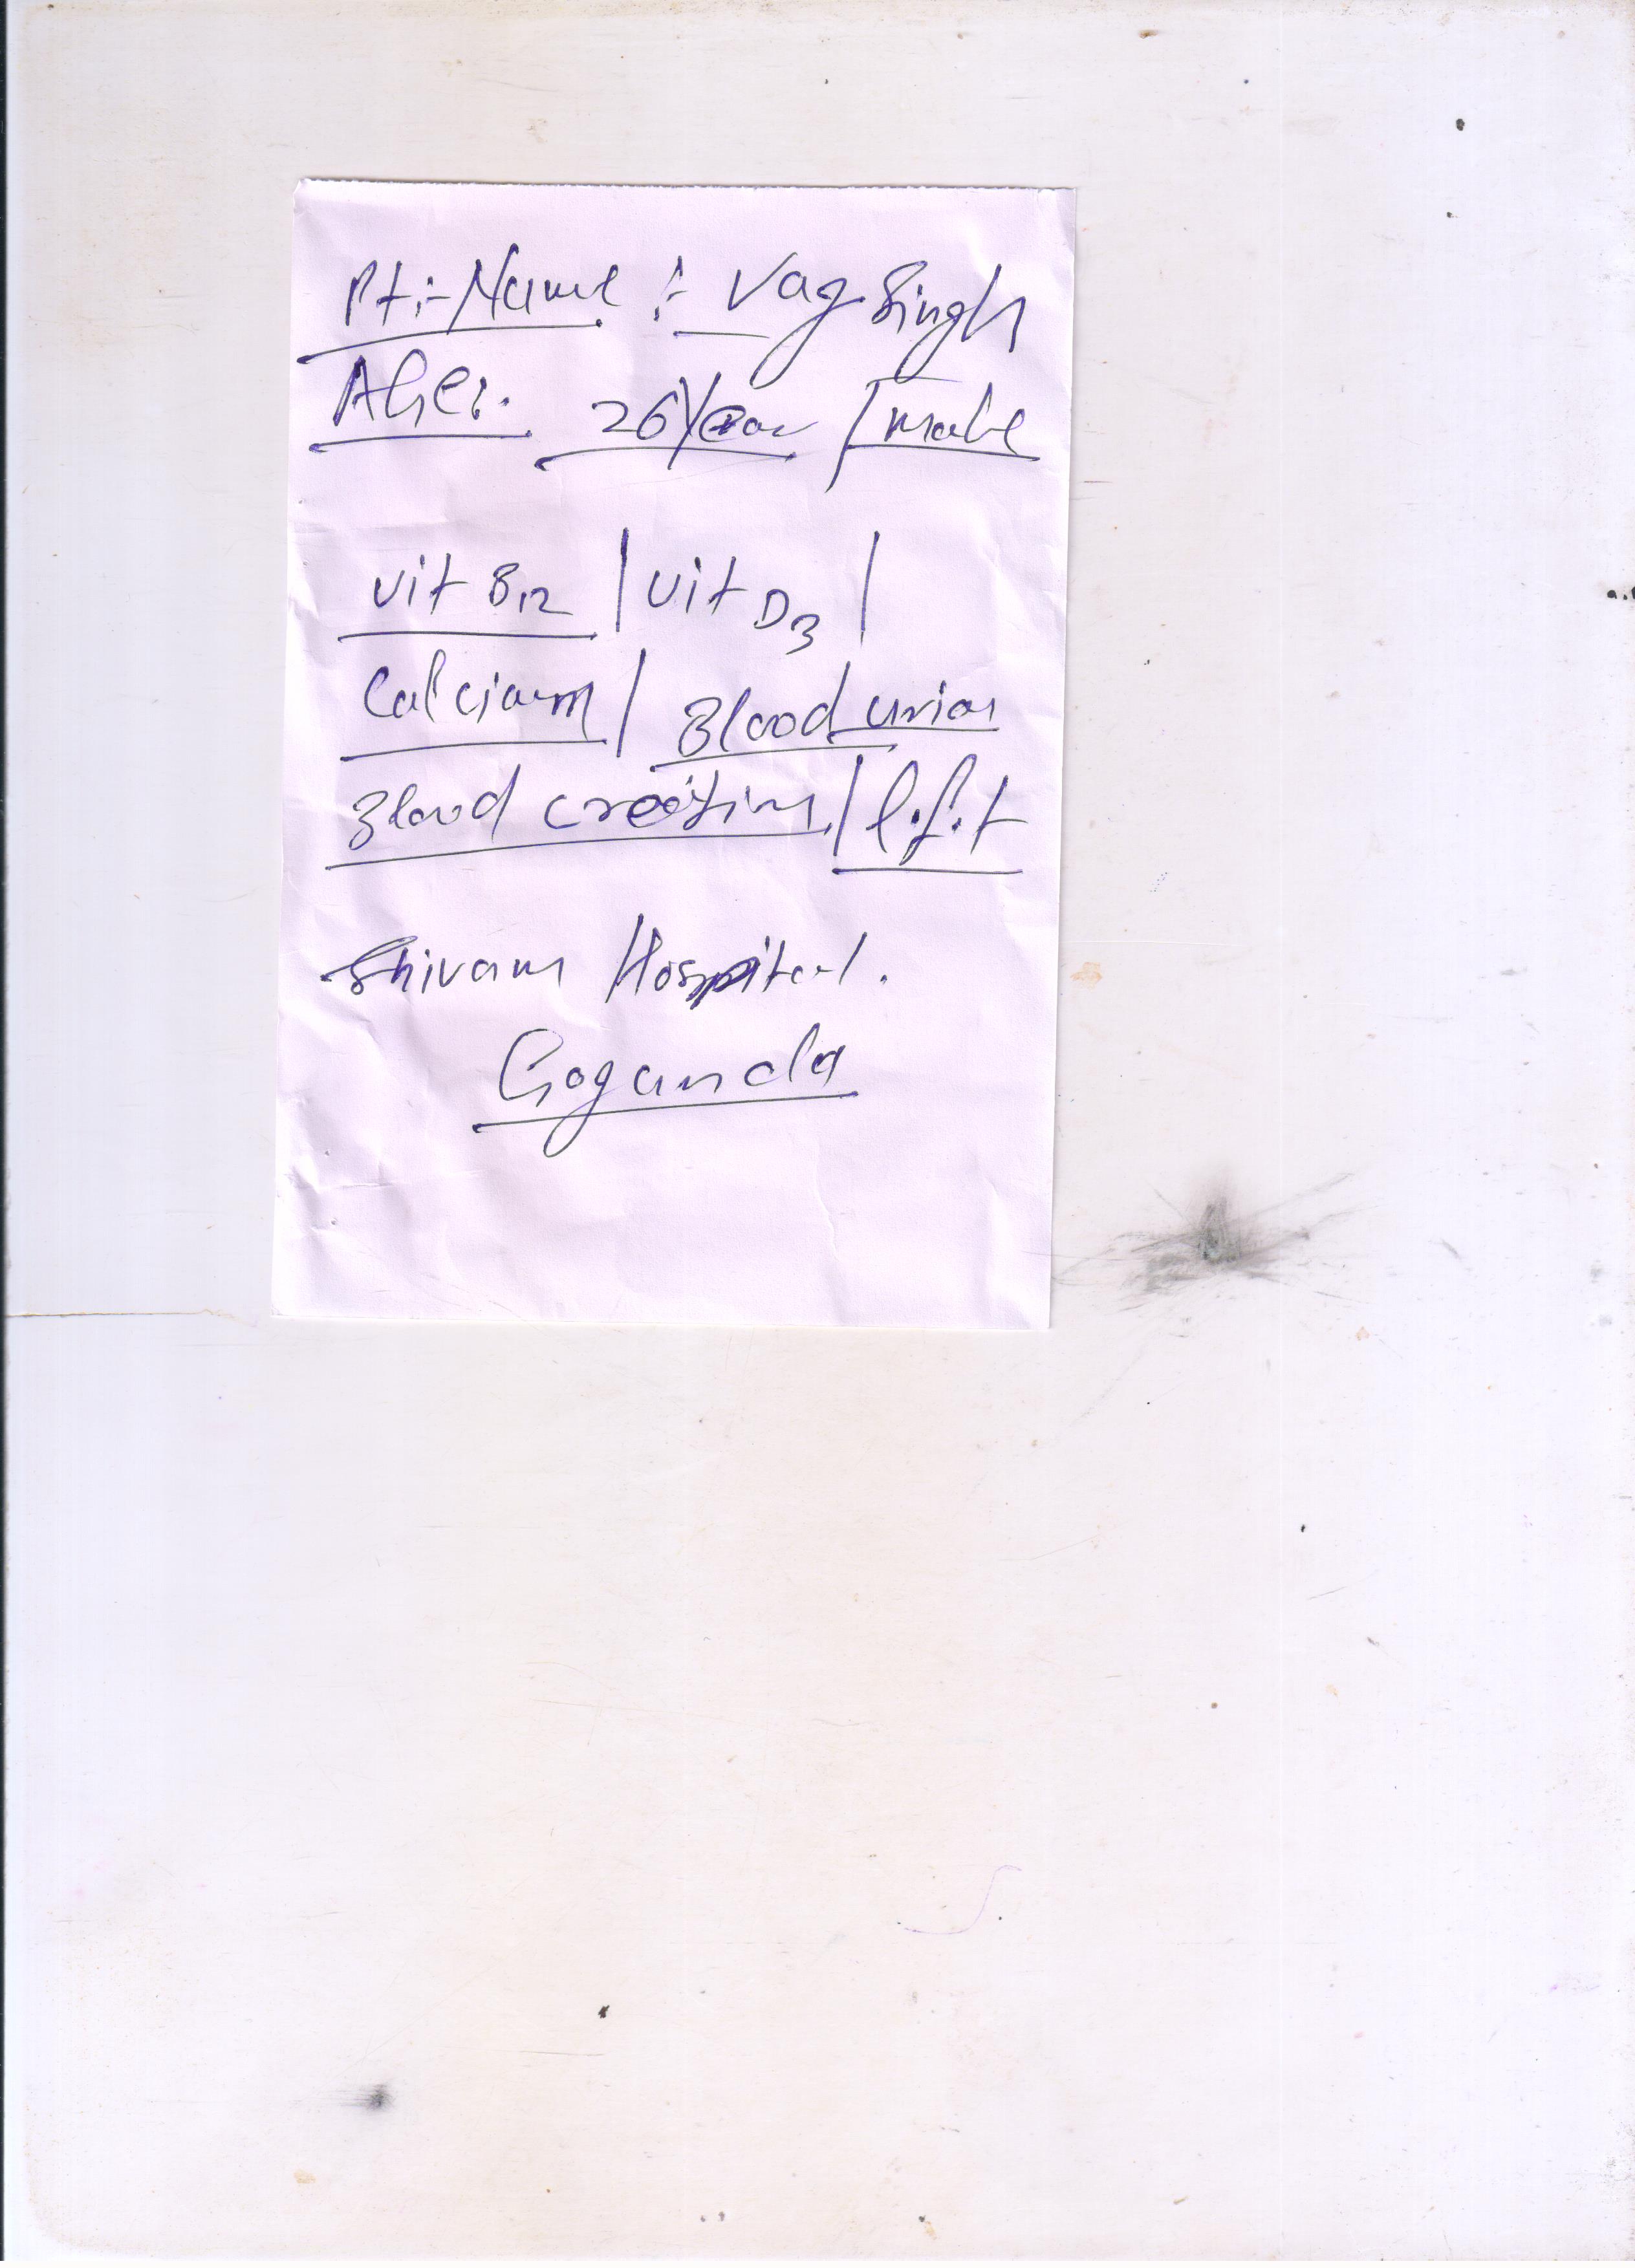 Pt:- Name :- Vag Singh
Age:. 26 Year / male
vit B12 | vit D3 |
Calcium / Blood uria
Blood creatin / l.f.t
Shivam Hospital.
Gogunda